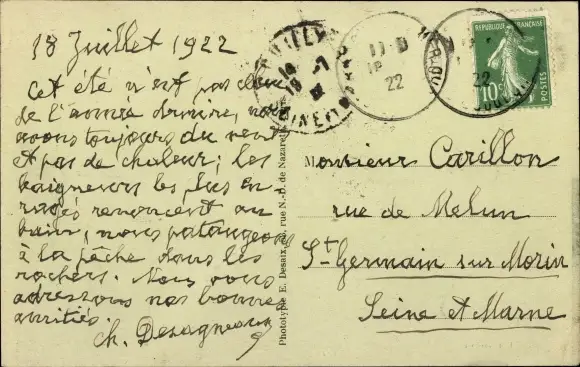 18 Juillet 1922
Cet été n'est pas celui
de l'année dernière, nous
avons toujours du vent
et pas de chaleur; les
baigneurs les plus en
ragés renoncent au
bain, nous pataugeons
à la pêche dans les
rochers. Nous vous
adressons nos bonnes
amitiés.
Ch. Desagneaux
Phototypie E. Desaix, rue N.-D. de Nazareth
Monsieur Carillon
rue de Melun
St Germain sur Morin
Seine et Marne
REPUBLIQUE FRANÇAISE
10c
POSTES
22
22